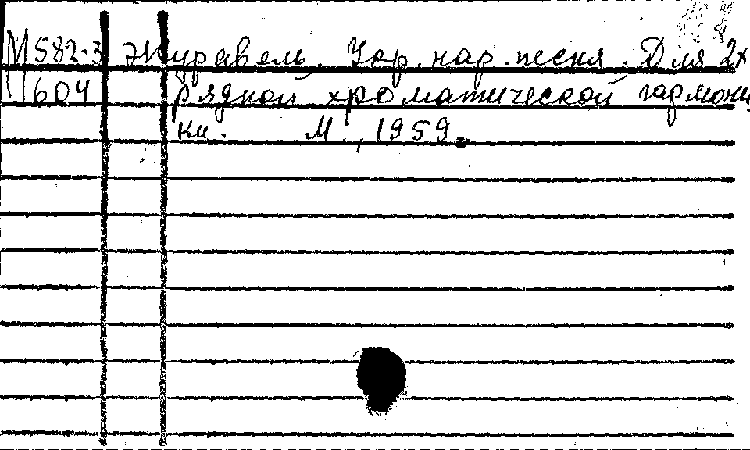 М582.3 Журавель. Укр. нар. песня. Для 2х
11604 рядной хроматической гармони
ки. М., 1959.